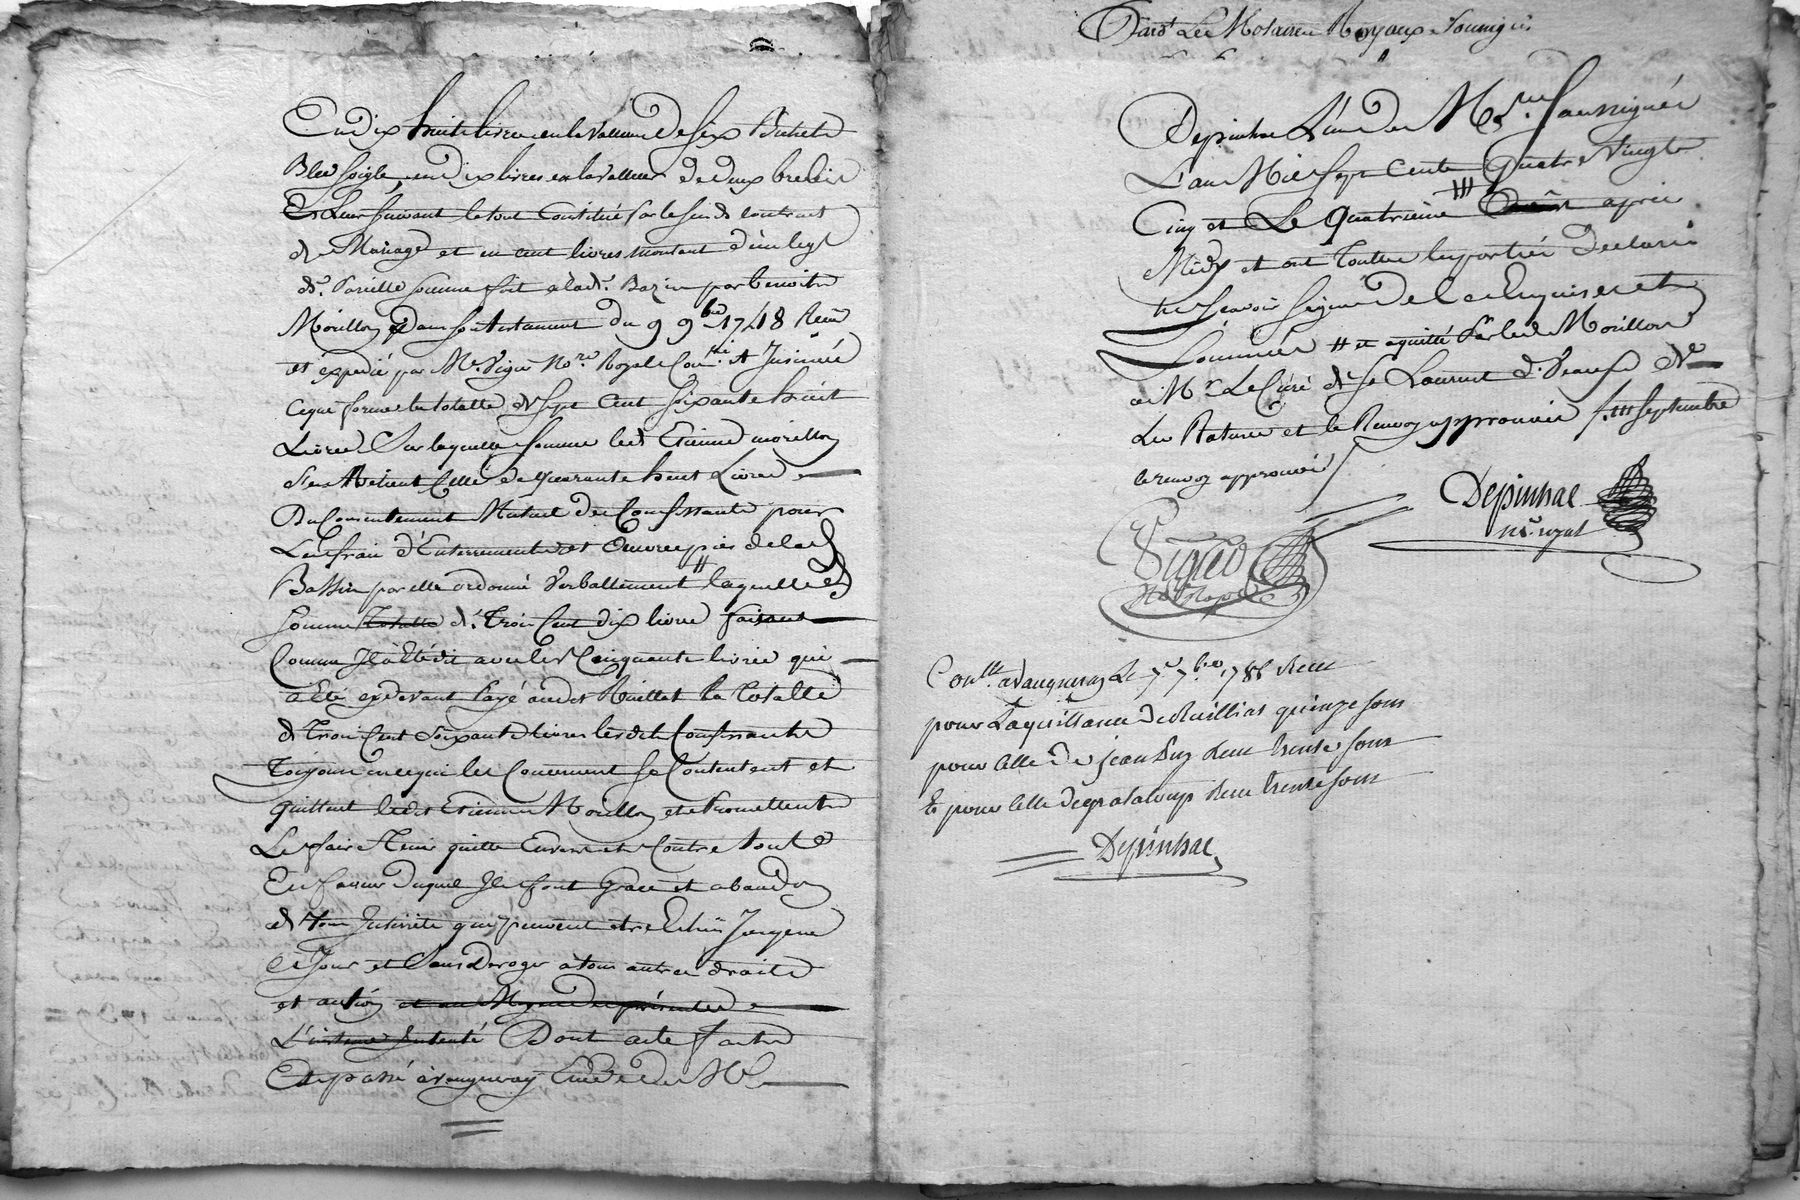 En dix huit livres en la valleur de six Bichets
Bled soigle, en dix livres en la valleur de deux brebis
Et Leur suivant le tout Constitué par le susd. contract
de Mariage et en cent livres montant d'un legt
de pareille somme fait a lad. Bazin par benoite
Morillon Dans son testament du 9 9bre 1748 Reçu
et éxpedié par Me. Vigier Nore. Royal et Jnsinué
ce qui forme la totalle de sept Cent soixante huit
Livres Sur laquelle somme led. Etienne morillon
s'en Retient Celle de quarante huit Livres
Du Consentement Mutuel des Confessants pour
Les frais d'Enterrement et Oeuvres pies de lad.
Bassin par elle ordonné Verballement # laquelle
somme totalle de Trois Cent dix livres faisant
Comme Jl a Eté dit avec les Cinquante livres qui
a Eté cy devant payé audit Ruillat la totalle
de Trois Cent soixante livres lesdit Confessants
Toujours en ce qui les Concernent se Contentent et
quittent ledit Etienne Morillon et promettent
Le faire tenir quitte Envers et Contre tout
En faveur duquel Jls font Grace et abandon
de tous Jnterets qui peuvent etre Echus Jusques a
Ce Jour et Sans Deroger a tous autres droits
et action et au Moyen des presentes
L'instance Jntenté Dont acte fait
Et passé a Vaugneray Etude de Me.
Pard. Les Notaires Royaux Soussignés
Depinhac L'un des Nres. Soussignés
L'an Mil Sept Cents Quatre Vingt
Cinq et Le Quatrieme après
Midy et ont Toutes les parties Declaré
ne Scavoir signer De Ce Enquises et
Sommées # et aquitté par led. Morillon
a Mr. Le Curé de St Laurent d.
Les Ratures et le Renvoy approuvés /. septembre
le renvoy approuvé
Depinhac
nre. royal
Vigier
Nore. Royal
Conllé. a Vaugneray Le 7bre 178 Reçu
pour Laquittance de Ruilliat quinze sous
pour Celle De Jean Reçu trente sous
Et pour Celle de grataloup Reçu trente sous
Depinhac